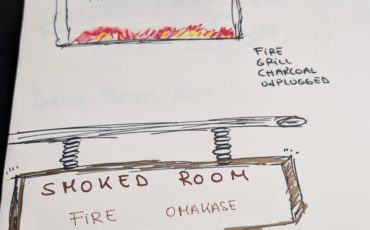 FIRE
GRILL
CHARCOAL
UNPLUGGED
SMOKED ROOM
FIRE OMAKASE